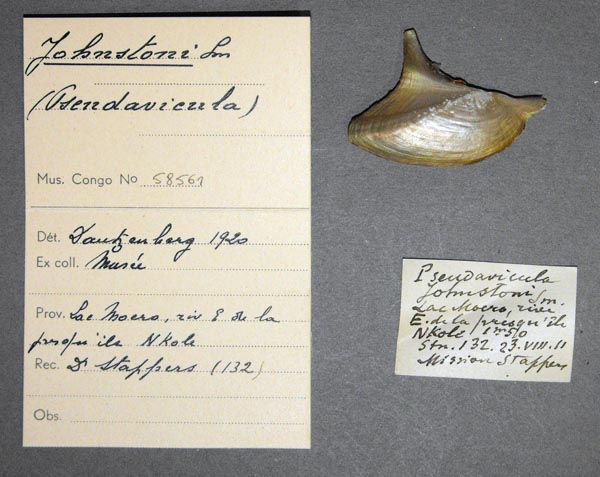 Johnstoni Sm
(Pseudavicula)
Mus. Congo No 58561
Dét. Dautzenberg 1920
Ex coll. Musée
Prov. Lac Moero, riv E de la
presqu'île Nkole
Rec. Dr Stappers (132)
Obs.
Pseudavicula
Johnstoni Sm.
Lac Moero, rive
E. de la presqu'île
Nkole 1m50
Stn. 132. 23.VIII.11
Mission Stappers